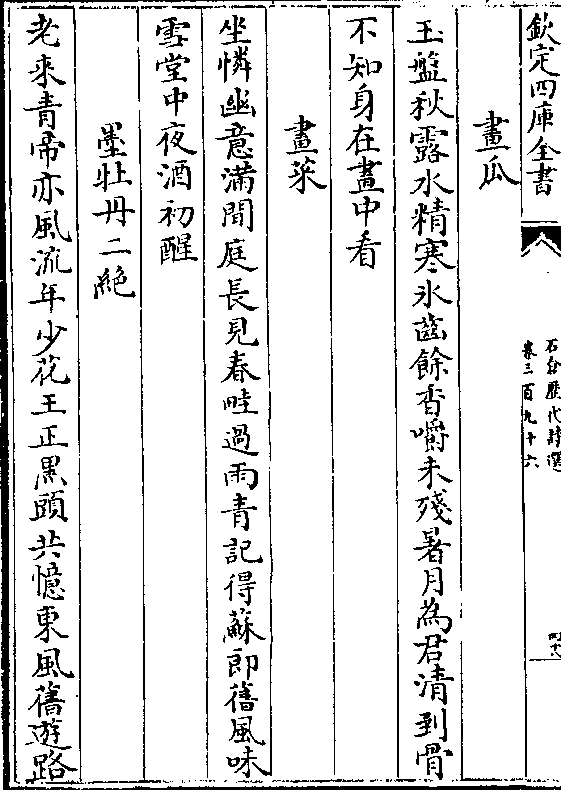 欽定四庫全書
石倉歷代詩選
卷三百九十六
畫瓜
玉盤秋露水精寒氷齒餘香嚼未殘暑月為君清到骨
不知身在畫中看
畫菜
坐憐幽意滿閒庭長見春畦過雨青記得蘇郎舊風味
雪堂中夜酒初醒
墨牡丹二絶
老來青帝亦風流年少花王正黑頭共憶東風舊遊路